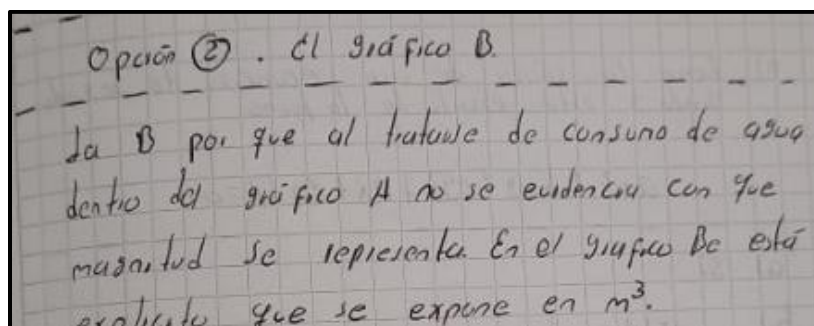 Opción ②. El gráfico B.
La B por que al tratarse de consumo de agua
dentro del gráfico A no se evidencia con que
magnitud se representa. En el grafico B está
explicito que se expone en m³.